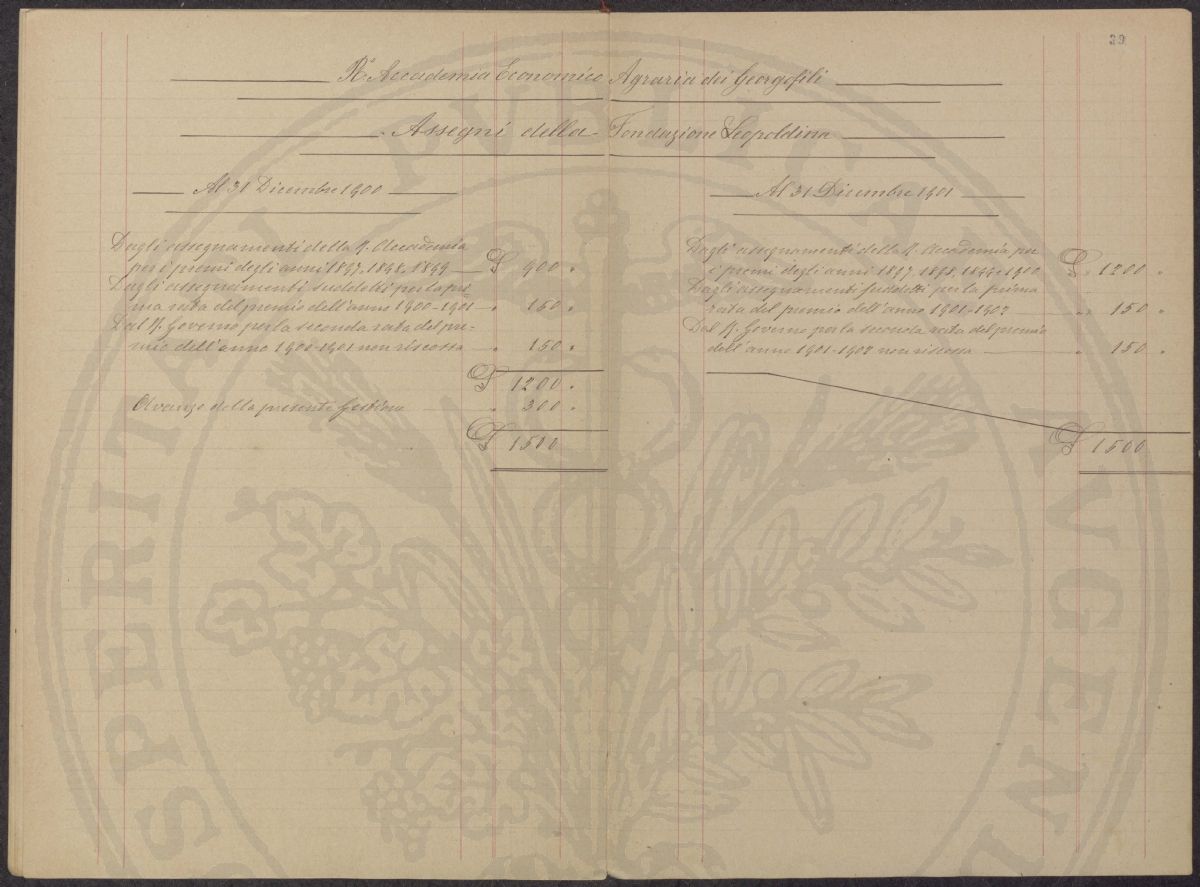 39
R.ª Accademia Economico Agraria dei Georgofili
Assegni della Fondazione Leopoldina
Al 31 Dicembre 1900
Dagli assegnamenti della R. Accademia
per i premi degli anni 1897. 1898. 1899 £ 900 "
Dagli assegnamenti suddetti per la pri=
ma rata del premio dell'anno 1900-1901 " 150 "
Dal R. Governo per la seconda rata del pre=
mio dell'anno 1900-1901 non riscossa " 150 "
£ 1200 "
Avanzo della presente Gestione " 300 "
£ 1500
Al 31 Dicembre 1901
Dagli assegnamenti della R. Accademia per
i premi degli anni 1897, 1898, 1899 e 1900 £ 1200 "
Dagli assegnamenti suddetti per la prima
rata del premio dell'anno 1901-1902 " 150 "
Dal R. Governo per la seconda rata del premio
dell'anno 1901-1902 non riscossa " 150 "
£ 1500
PROSPERITATI PVBLICAE AVGENDAE